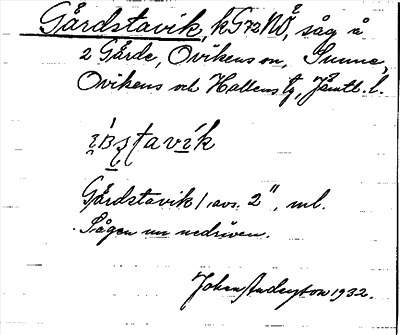 Gårdstavik, kG72NÖ, såg å
2 Gårde, Ovikens sn, Sunne,
Ovikens och Hallens tg, Jämtl. l.
Gårdstavik / avs. 2", ml.
Sågen nu nedriven.
Johan Anderson 1932.